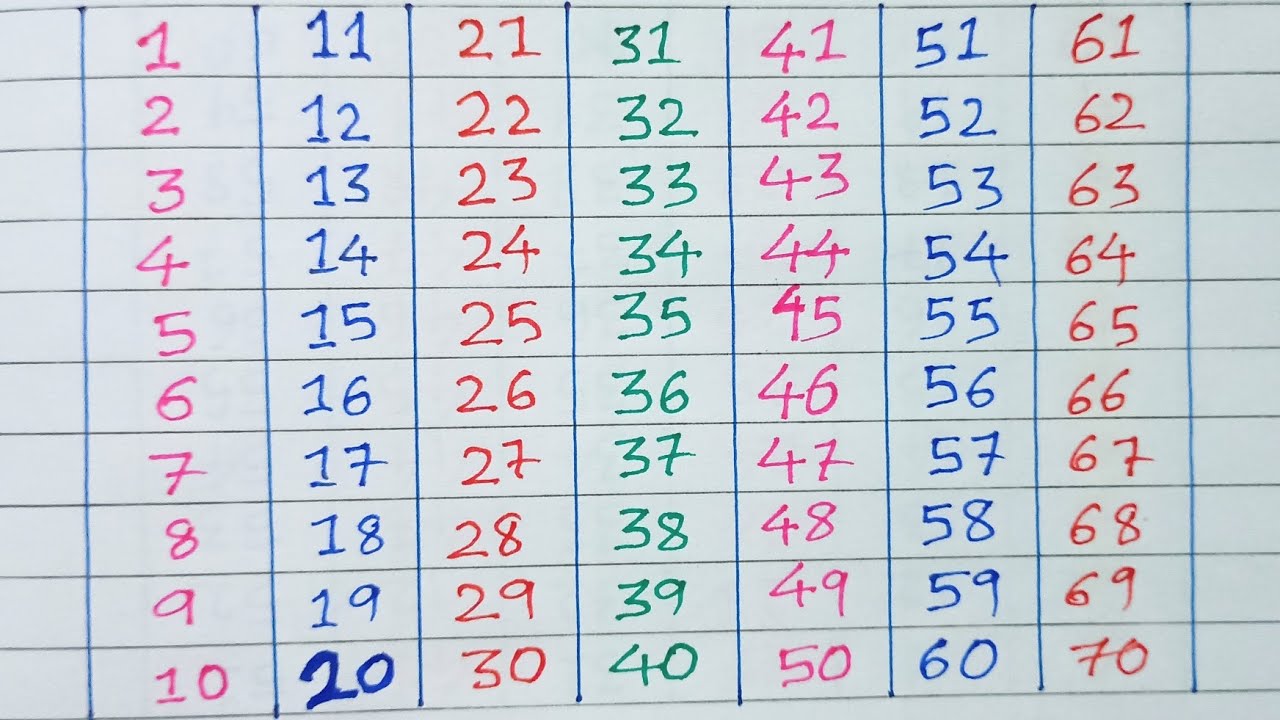 1 11 21 31 41 51 61
2 12 22 32 42 52 62
3 13 23 33 43 53 63
4 14 24 34 44 54 64
5 15 25 35 45 55 65
6 16 26 36 46 56 66
7 17 27 37 47 57 67
8 18 28 38 48 58 68
9 19 29 39 49 59 69
10 20 30 40 50 60 70